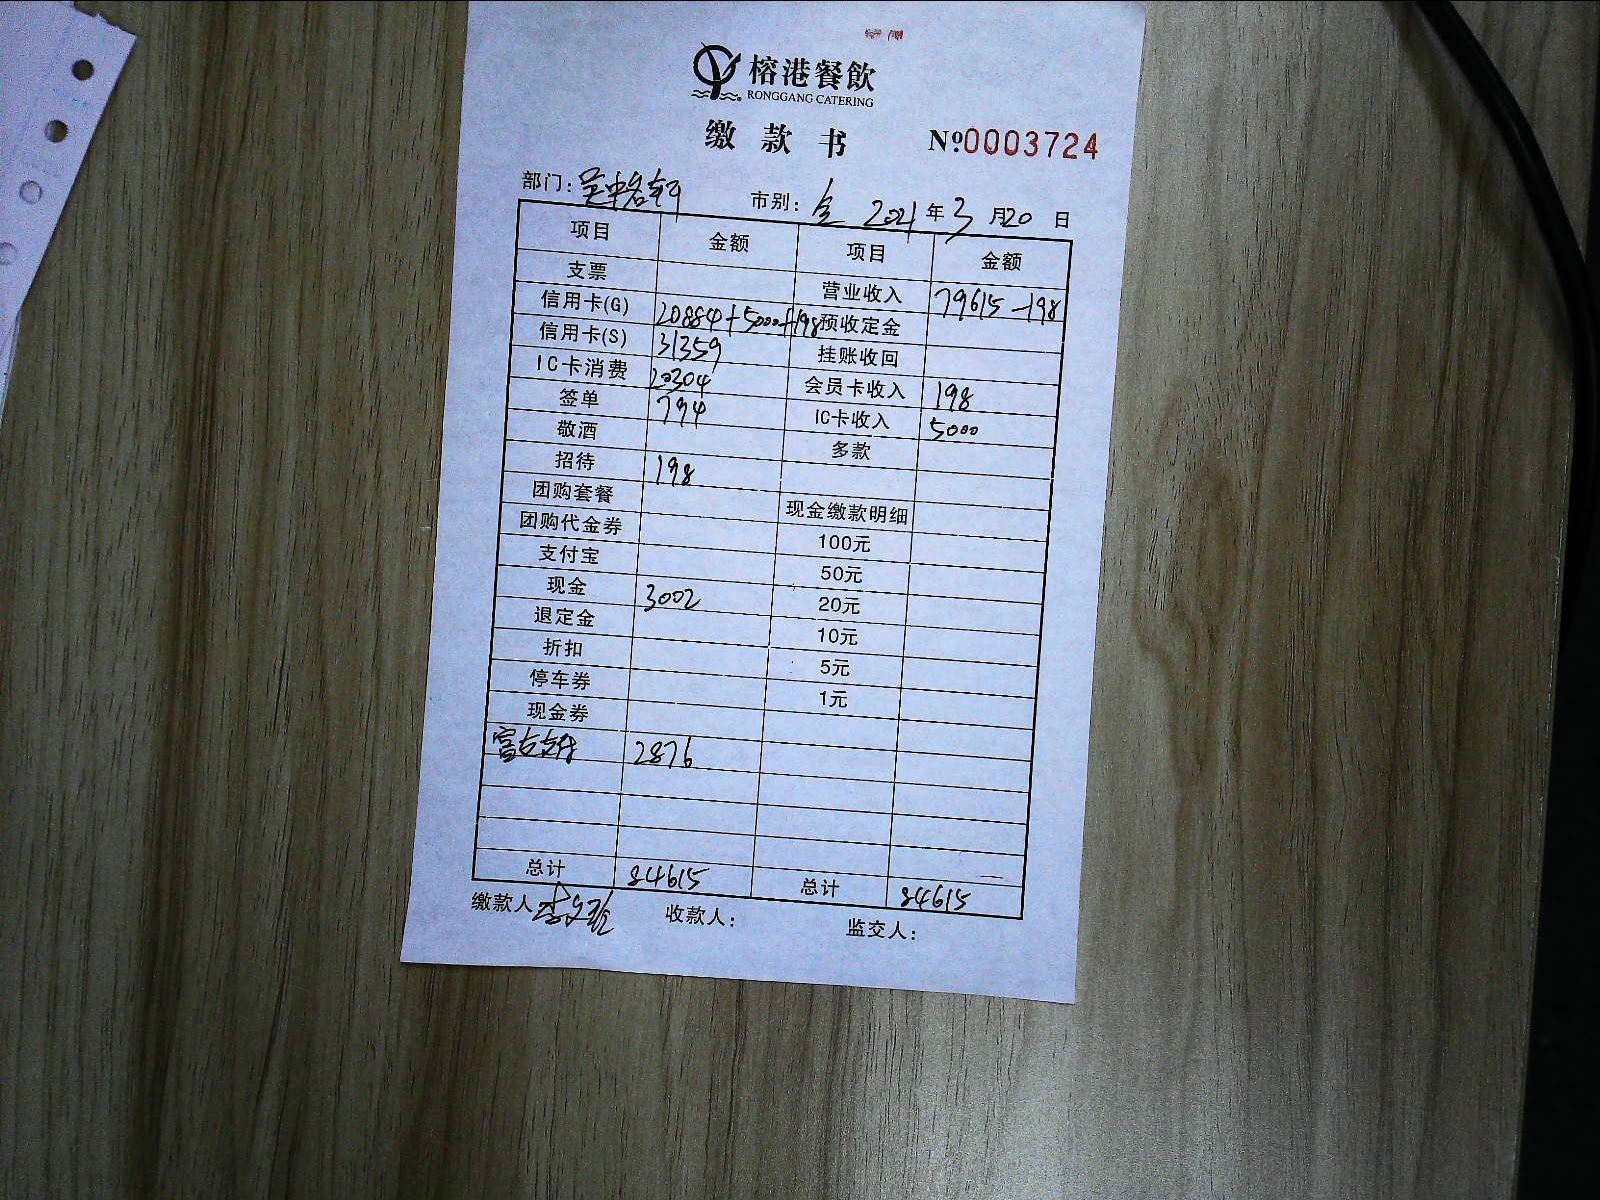 榕港餐飲
RONGGANG CATERING
缴款书 №0003724
部门: 市别: 全 2021年3月20日
项目 金额 项目 金额
支票 营业收入 79615-198
信用卡(G) 20884+5000+198 预收定金
信用卡(S) 31359 挂账收回
IC卡消费 20304 会员卡收入 198
签单 794 IC卡收入 5000
敬酒 多款
招待 198
团购套餐 现金缴款明细
团购代金券 100元
支付宝 50元
现金 3002 20元
退定金 10元
折扣 5元
停车券 1元
现金券
2876
总计 84615 总计 84615
缴款人 收款人: 监交人: